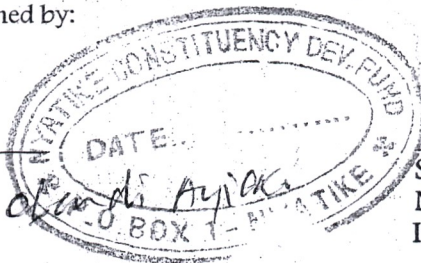 ned by:
NYATIKE CONSTITUENCY DEV. FUND
DATE...............
Ayiok.
O. BOX 1 -
TIKE
S
N
I